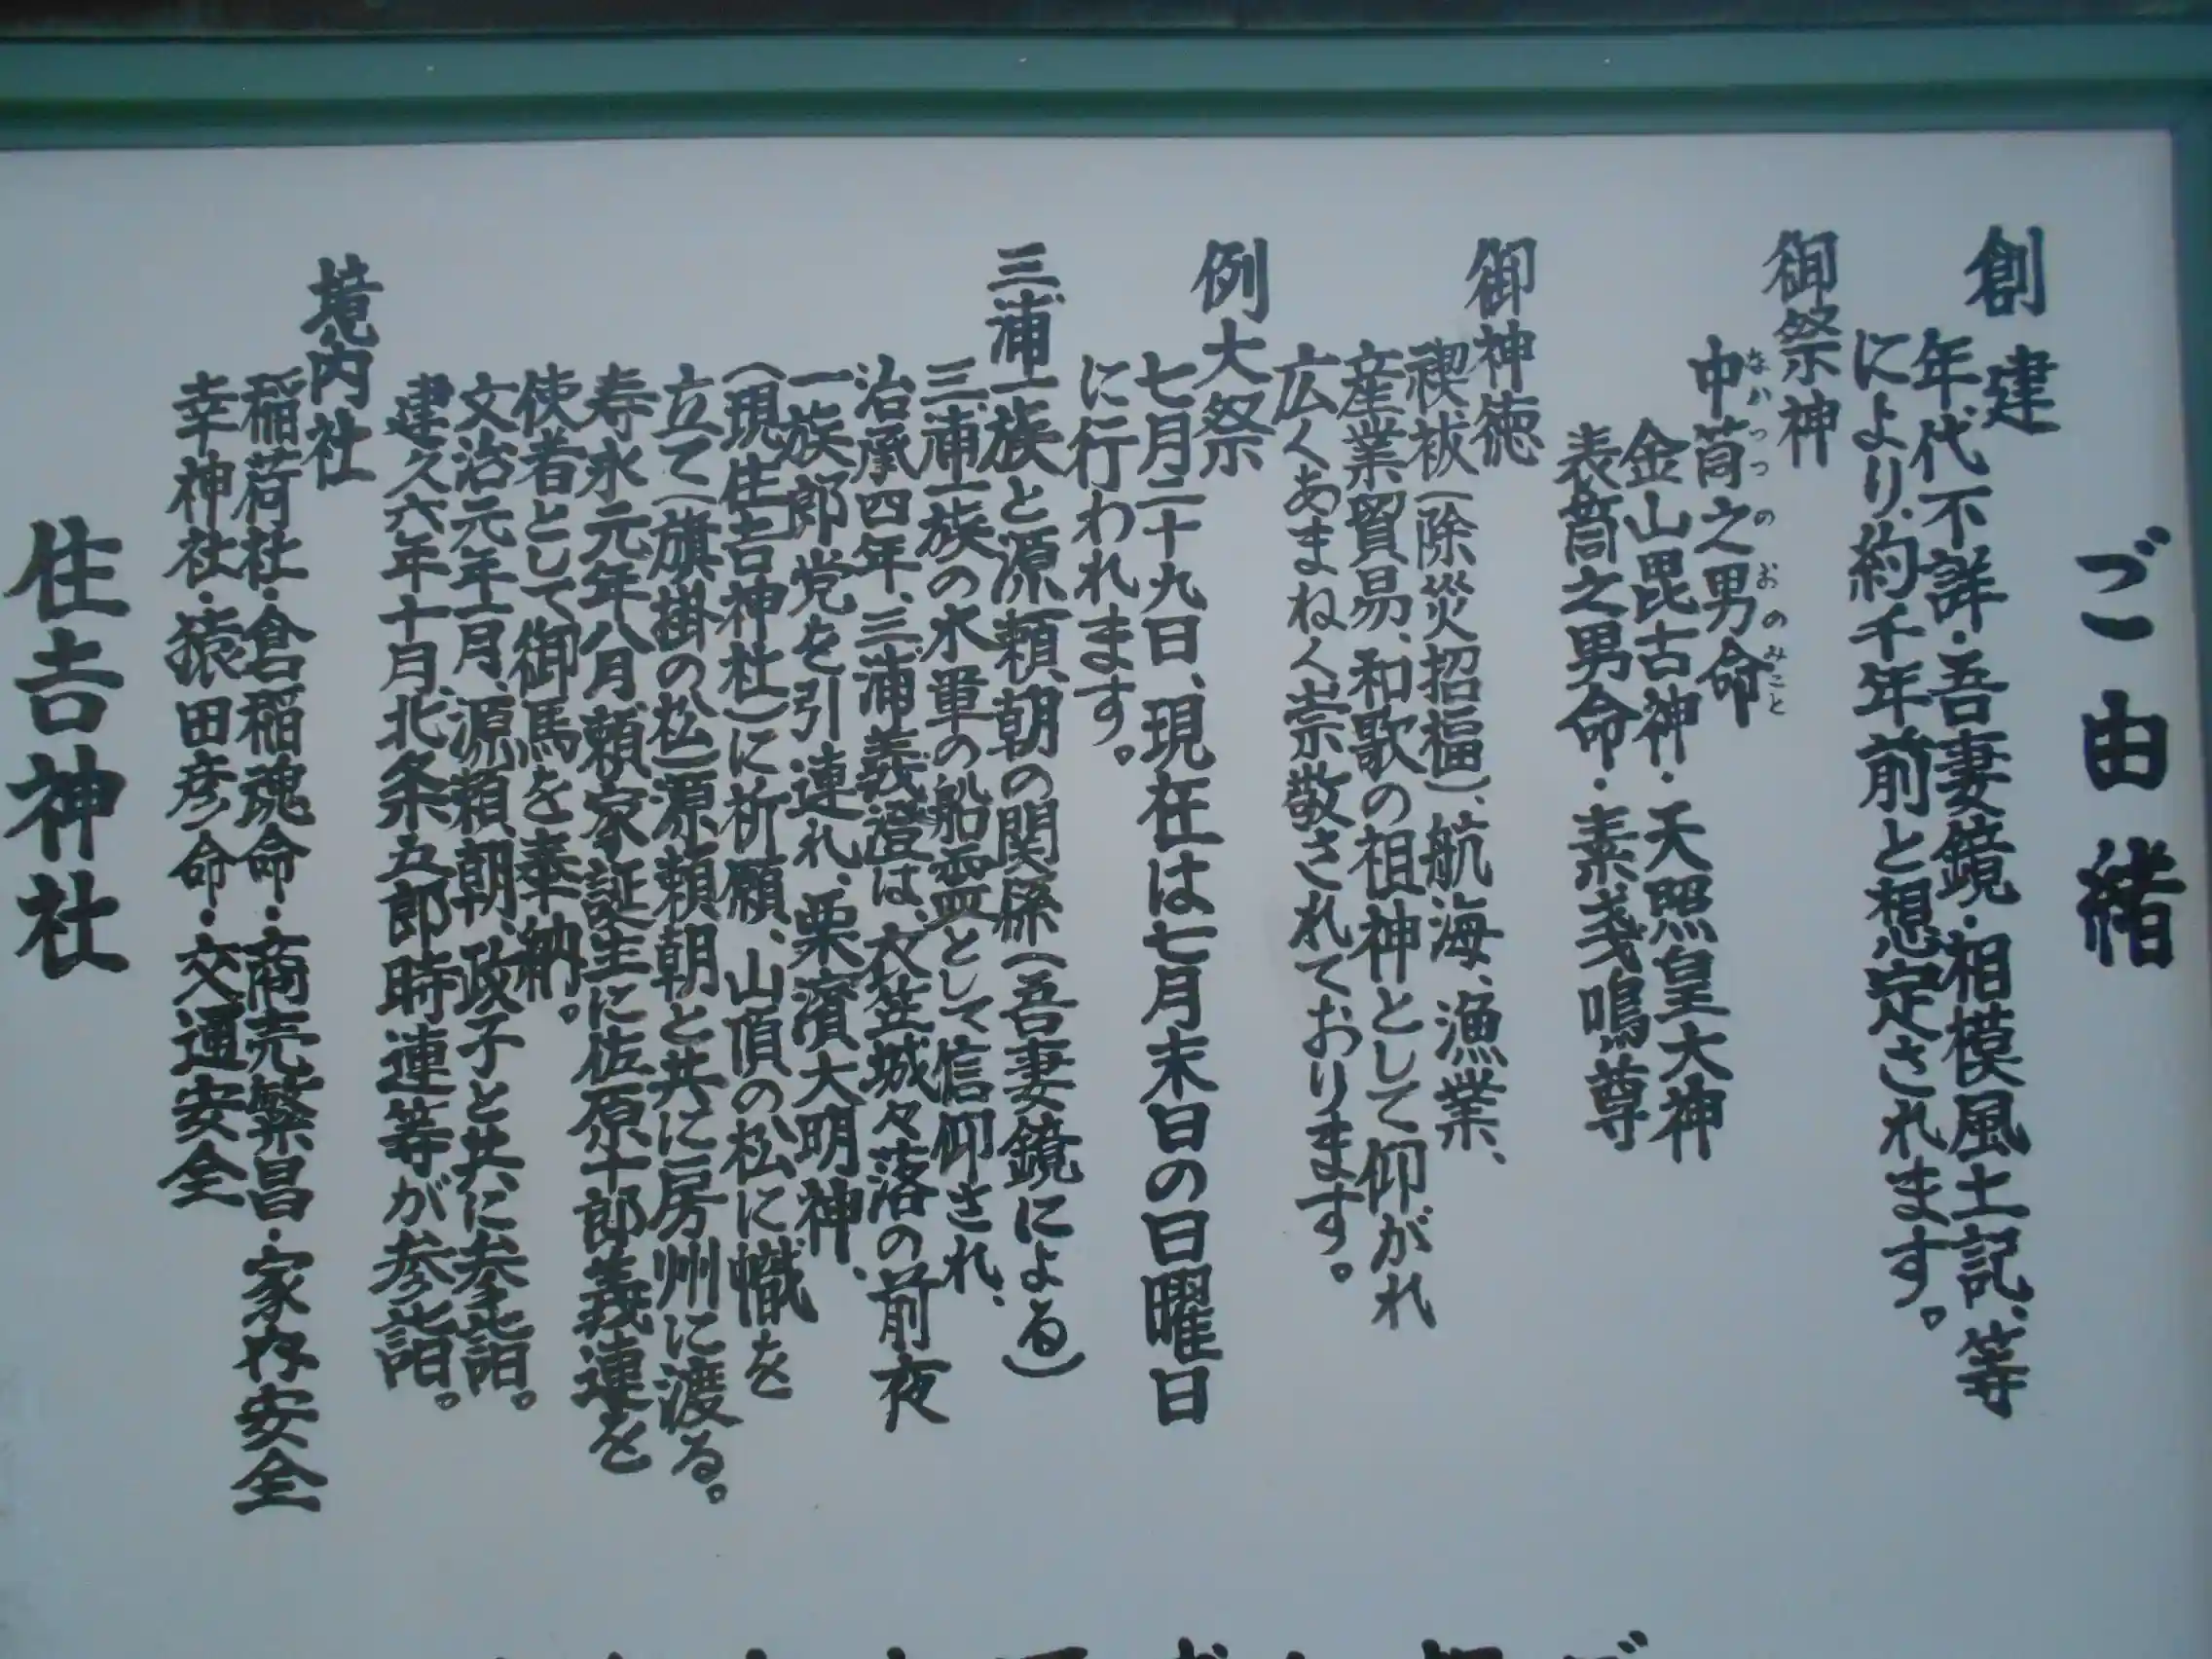 ご由緒
創建
年代不詳・吾妻鏡・相模風土記、等
により、約千年前と想定されます。
御祭神
中筒之男命
なかつつのおのみこと
金山毘古神・天照皇大神
表筒之男命・素戔嗚尊
御神徳
禊祓(除災招福)、航海、漁業、
産業貿易、和歌の祖神として仰がれ
広くあまねく崇敬されております。
例大祭
七月二十九日、現在は七月末日の日曜日
に行われます。
三浦一族と源頼朝の関係(吾妻鏡による)
三浦一族の水軍の船霊として信仰され、
治承四年、三浦義澄は、衣笠城々落の前夜
一族郎党を引連れ、栗濱大明神、
(現住吉神社)に祈願、山頂の松に幟を
立て(旗掛の松)源頼朝と共に房州に渡る。
寿永元年八月、頼家誕生に佐原十郎義連を
使者として御馬を奉納。
文治元年一月、源頼朝、政子と共に参詣。
建久六年十月、北条五郎時連等が参詣。
境内社
稲荷社・倉稲魂命・商売繁昌・家内安全
幸神社・猿田彦命・交通安全
住吉神社